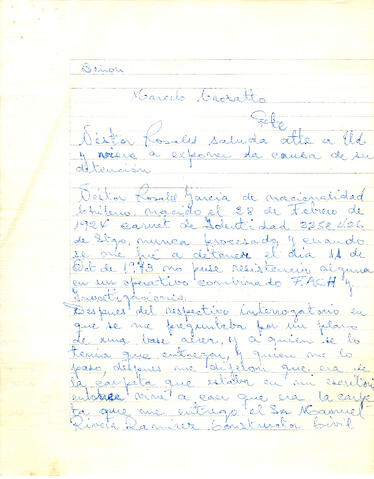 Señor
Marcelo
Pte
Néstor Rosales saluda atte a Ud
y viene a exponer la causa de su
detención
Néstor Rosales García de nacionalidad
Chileno, nacido el 28 de Febrero de
1924 carnet de Identidad 2258
de Stgo, nunca procesado y cuando
se me fué a detener el día 11 de
Oct de 1973 no puse resistencia alguna
en un operativo combinado F.ACH y
Investigaciones.
Despues del respectivo interrogatorio en
que se me preguntaba por un plano
de una base aerea, y a quien se lo
tenia que entregar, y quien me lo
paso, despues me dijeron que era de
la carpeta que estaba en mi escritorio
entonces vine a caer que era la carpe
ta que me entrego el Sr Manuel
Rivera Ramirez Constructor Civil